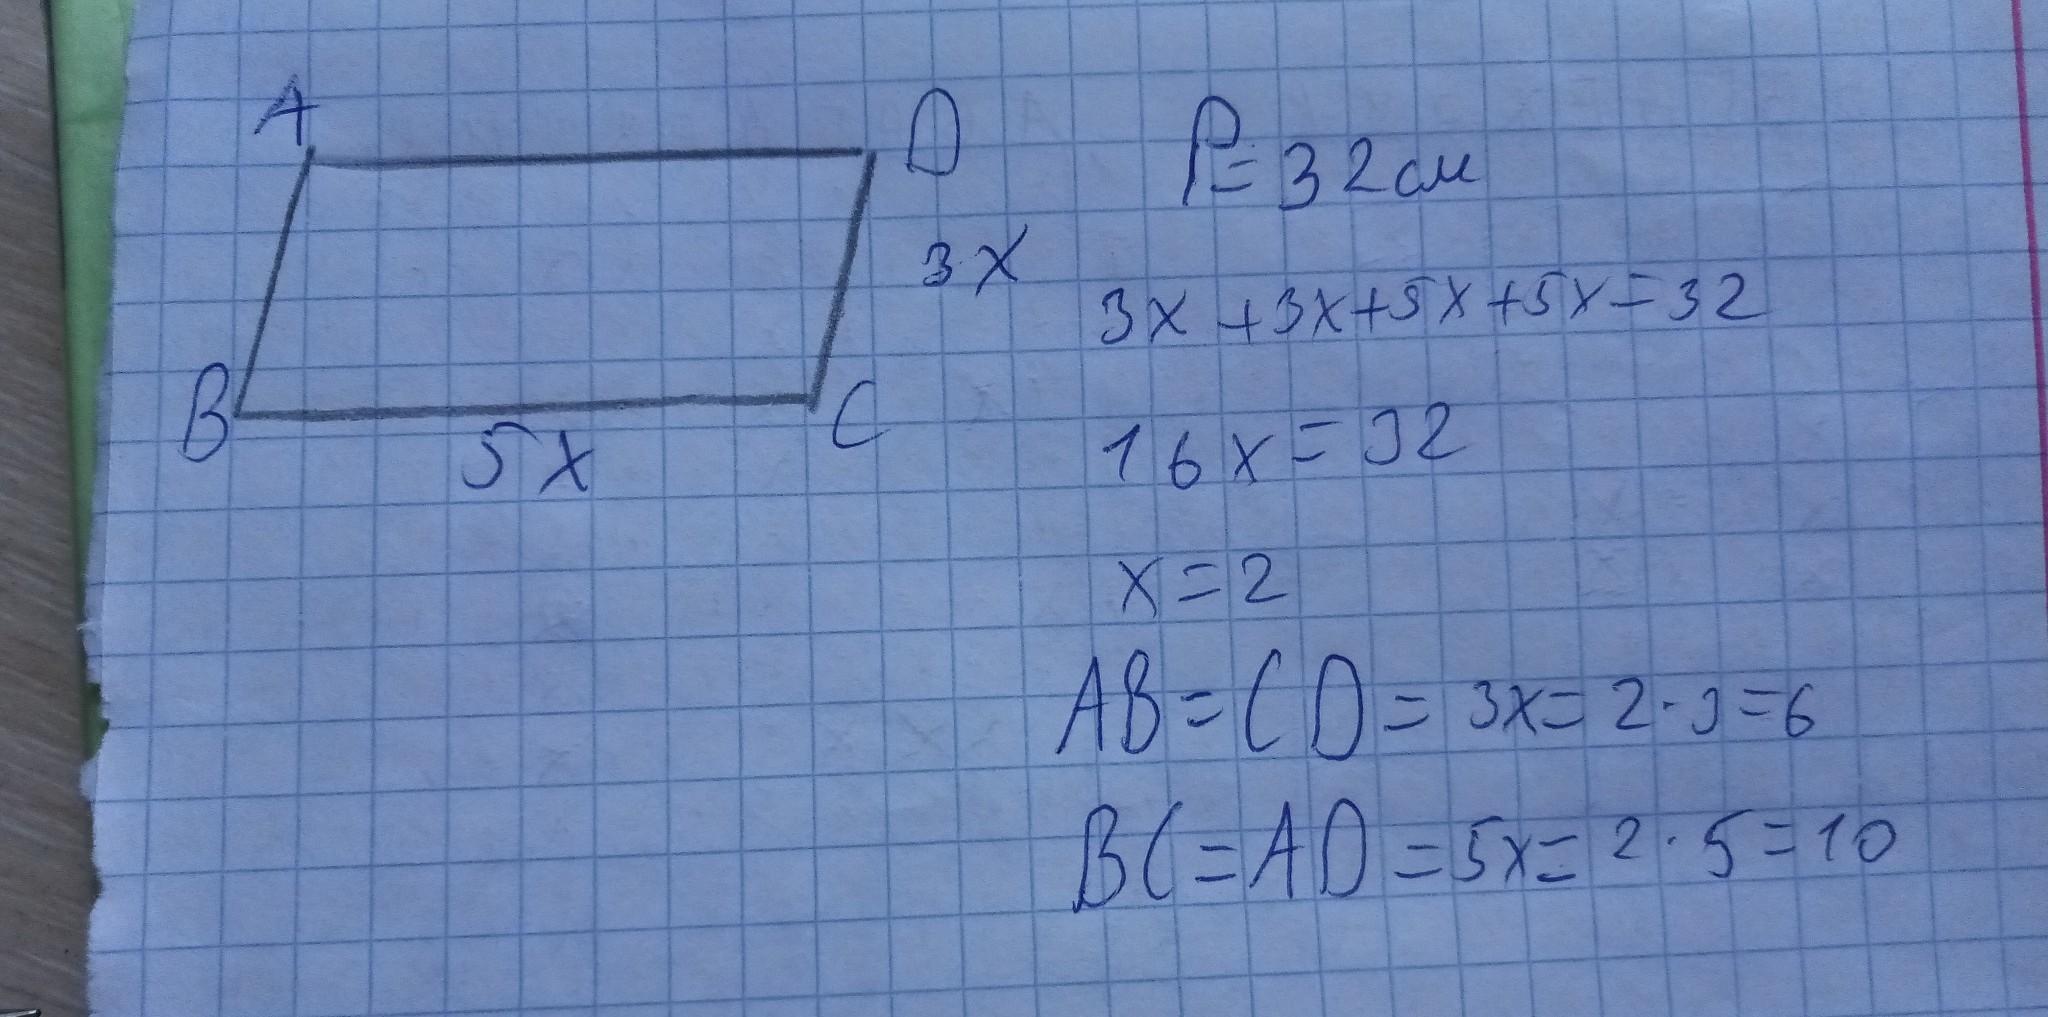 A
D
3x
B
C
5x
P=32см
3x+3x+5x+5x=32
16x=32
x=2
AB=CD=3x=2·3=6
BC=AD=5x=2·5=10